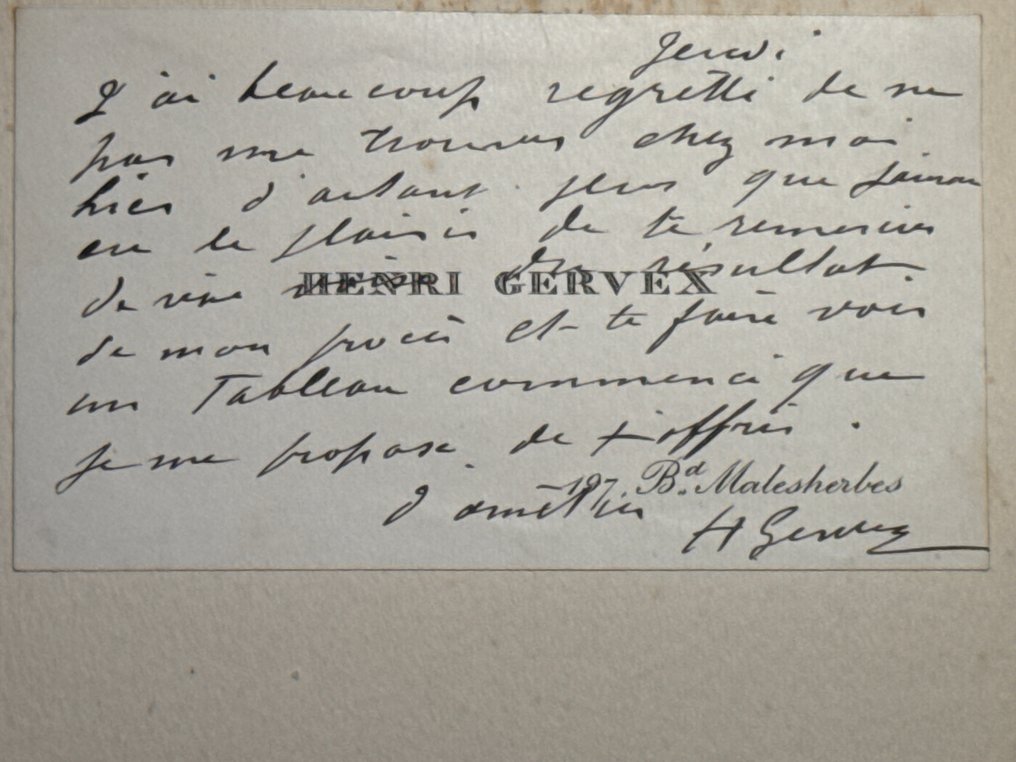 Jeudi
J'ai beaucoup regretté de ne
pas me trouver chez moi
hier d'autant plus que j'aurai
eu le plaisir de te remercier
de vive du résultat
HENRI GERVEX
de mon procès et te faire voir
un Tableau commencé que
je me propose de t'offrir.
197 Bd. Malesherbes
d'amitiés
H Gervex